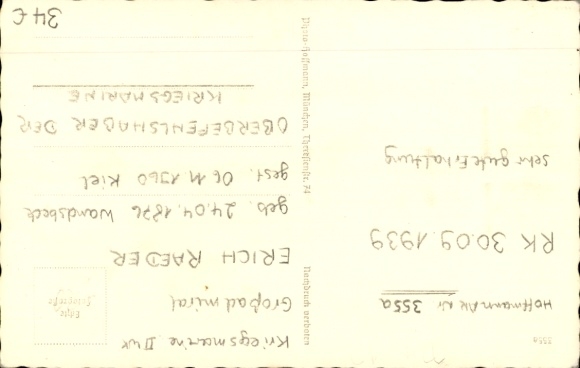 3554
Hoffmann AK Nr 355a
RK 30.09.1939
sehr gute Erhaltung
Photo-Hoffmann, München, Theresienstr. 74
Nachdruck verboten
Kriegsmarine II WK
Großadmiral
ERICH RAEDER
geb. 24.04.1876 Wandsbeck
gest. 06 11 1960 Kiel
OBERBEFEHLSHABER DER
KRIEGSMARINE
34€
Echte